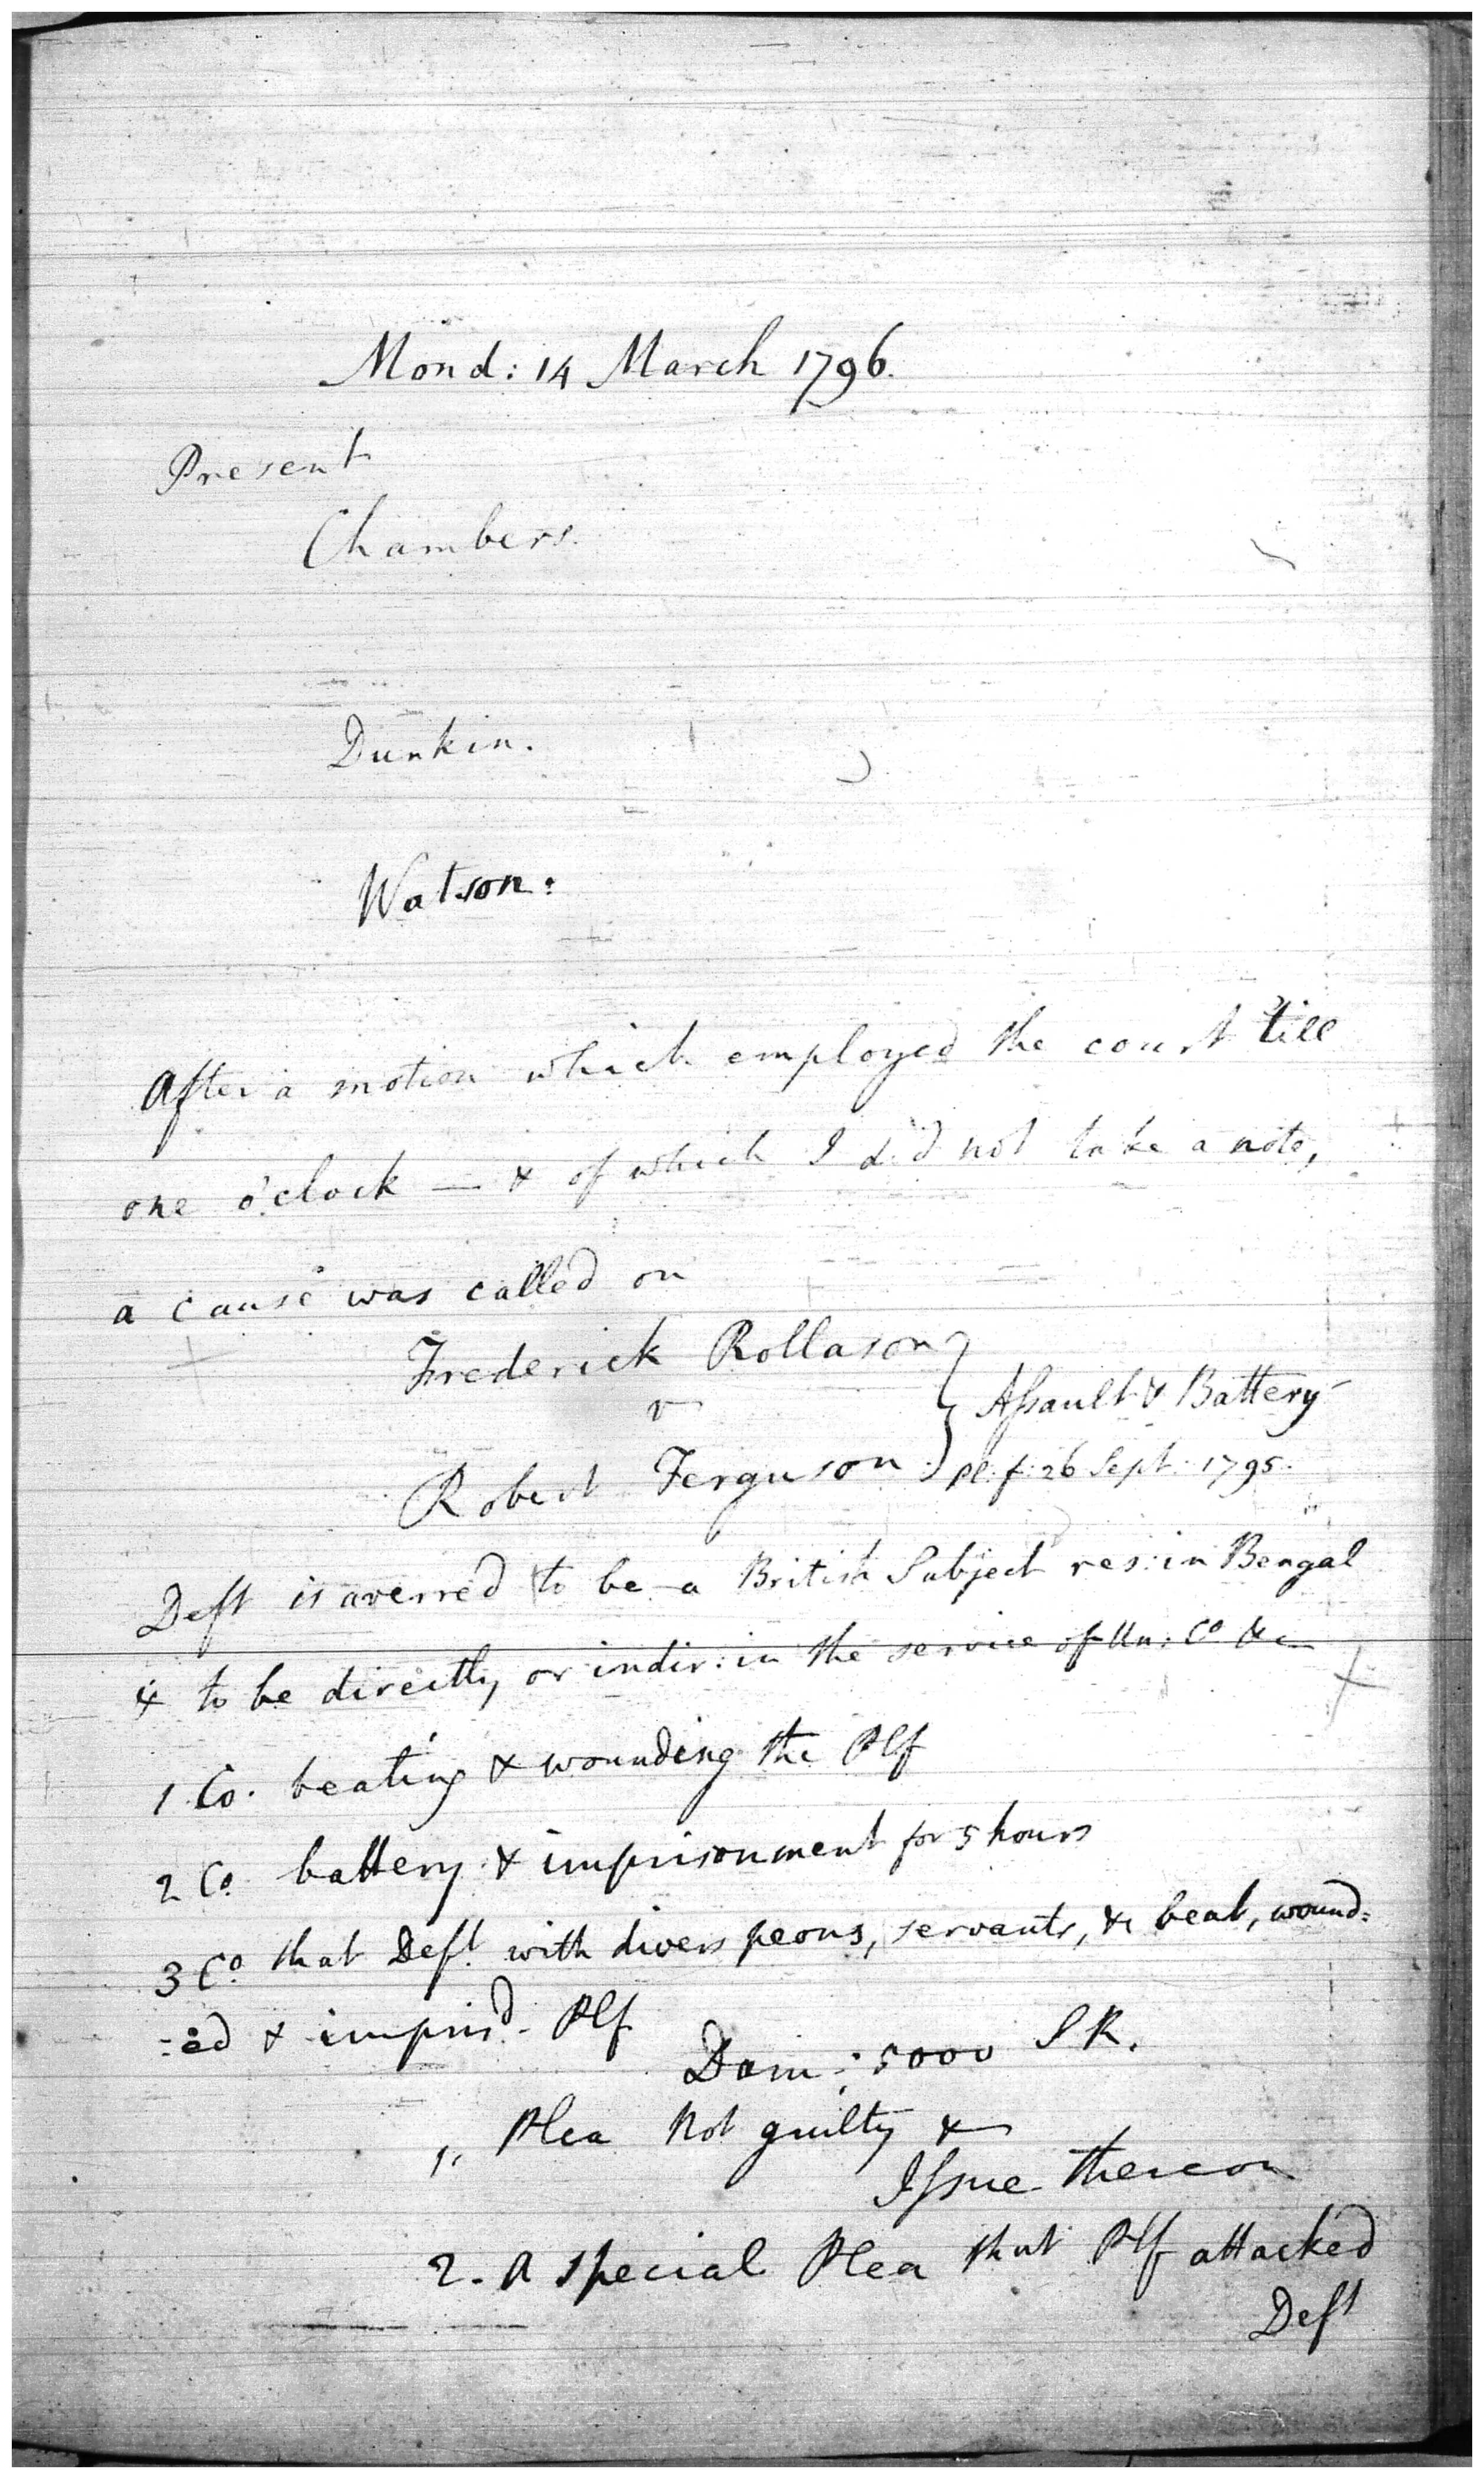 Mond: 14 March 1796.
Present
Chambers.
Dunkin.
Watson:
After a motion which employed the court till
one o'clock — & of which I did not take a note,
a cause was called on
Frederick Rollason
v
Assault & Battery
Robert Ferguson
pl. f. 26 Sept. 1795.
Deft is averred to be a British Subject res: in Bengal
& to be directly or indir: in the service of Un: Co &c
1 Co. beating & wounding the Plf
2 Co. battery & imprisonment for 5 hours
3 Co. that Deft. with divers peons, servants, &c beat, wound=
=ed & imprisd. Plf
Dam: 5000 SR.
1,, Plea Not guilty &
Issue thereon
2. A special Plea that Plf attacked
Deft